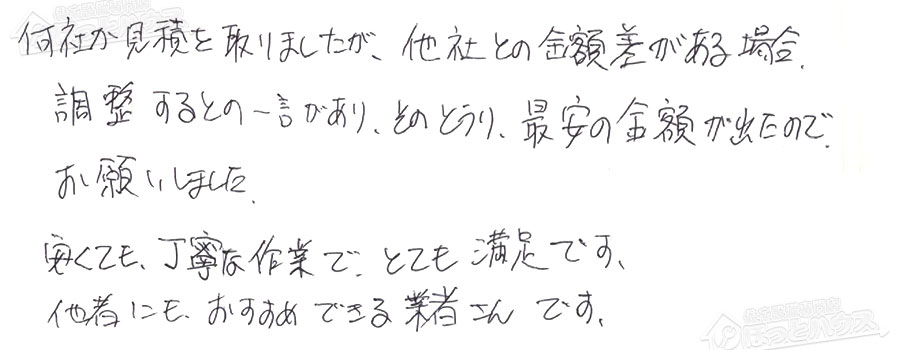 何社か見積を取りましたが、他社との金額差がある場合、
調整するとの一言があり、そのとうり、最安の金額が出たので、
お願いしました。
安くても、丁寧な作業で、とても満足です、
他者にも、おすすめできる業者さんです。
ほっとハウス